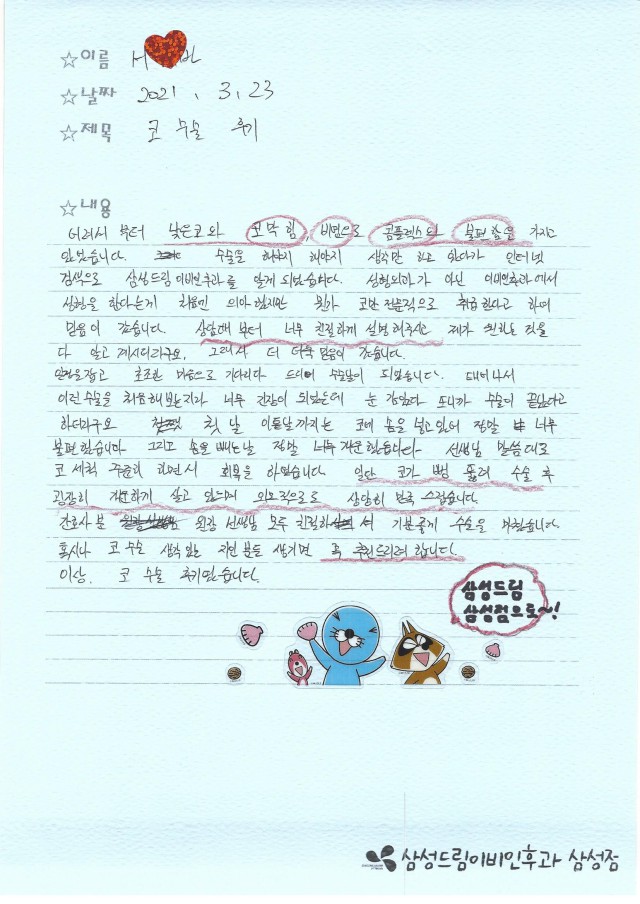 ☆이름 H
☆날짜 2021. 3. 23
☆제목 코 수술 후기
☆내용
어려서 부터 낮은코와 코막힘, 비염으로 콤플렉스와 불편함을 가지고
있었습니다. 수술은 해야지 해야지 생각만 하고 있다가 인터넷
검색으로 삼성드림이비인후과를 알게 되었습니다. 성형외과가 아닌 이비인후과에서
성형을 한다는게 처음엔 의아했지만 뭔가 코만 전문적으로 취급한다고 하여
믿음이 갔습니다. 상담때 부터 너무 친절하게 설명해주시고 제가 원하는 것을
다 알고 계시더라구요. 그래서 더 더욱 믿음이 갔습니다.
안정을잡고 초조한 마음으로 기다리다 드디어 수술날이 되었습니다. 태어나서
이런 수술을 처음 해보는지라 너무 긴장이 되었는데 눈 감았다 뜨니까 수술이 끝났다고
하더라구요 첫 날 이튿날까지는 코에 솜을 넣고있어 정말 너무
불편했습니다 그리고 솜을 빼는날 정말 너무 개운했습니다 선생님 말씀대로
코 세척 꾸준히 하면서 회복을 하였습니다 일단 코가 뻥 뚫려 수술 후
굉장히 개운하게 살고 있으며 외모적으로도 상당히 만족스럽습니다.
간호사분 원장 선생님 모두 친절하셔서 기분좋게 수술을 마쳤습니다.
혹시나 코 수술 생각 있는 지인 분들 생기면 꼭 추천드리려 합니다.
이상. 코 수술 후기였습니다.
삼성드림
삼성점으로~!
삼성드림이비인후과 삼성점